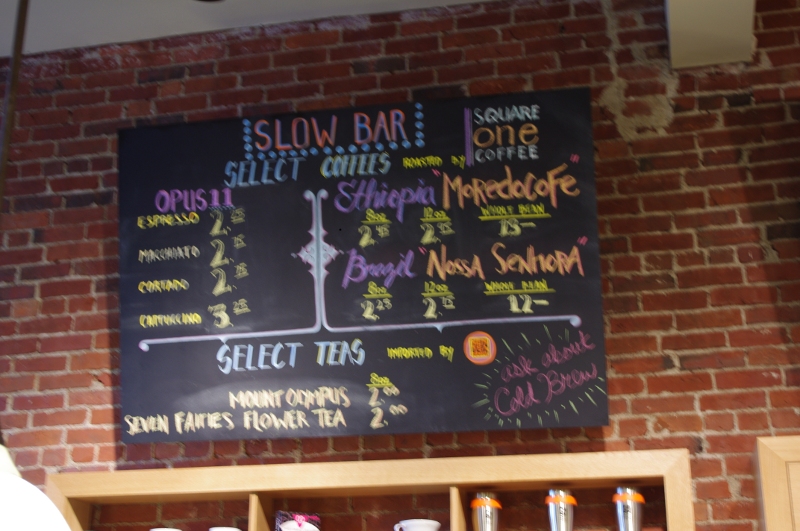 SLOW BAR
SQUARE
one
COFFEE
SELECT COFFEES ROASTED BY
OPUS 11
ESPRESSO 2.
MACCHIATO 2.
CORTADO 2.
CAPPUCCINO 3.
Ethiopia "MOREDOCOFE"
8oz 12oz WHOLE BEAN
2. 2. 15-
Brazil "NOSSA SENHORA"
8oz 12oz WHOLE BEAN
2.25 2. 12-
SELECT TEAS IMPORTED BY
8oz
MOUNT OLYMPUS 2.00
SEVEN FAIRIES FLOWER TEA 2.00
ask about
Cold Brew